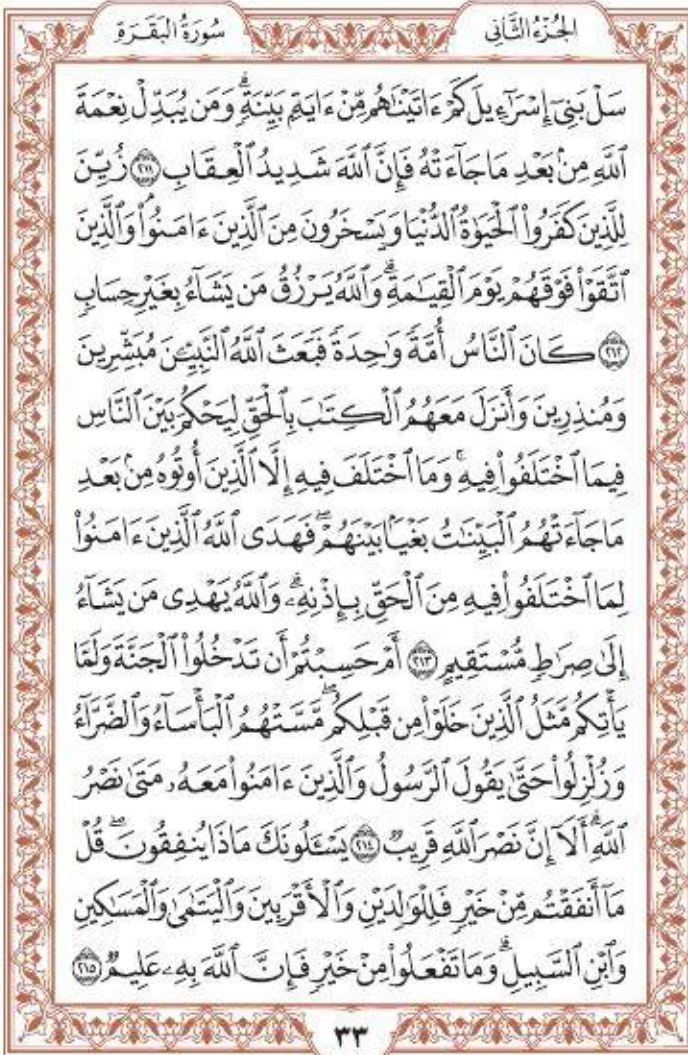 الجُزْءُ الثَّانِي
سُورَةُ البَقَرَةِ
سَلْ بَنِىٓ إِسْرَٰٓءِيلَ كَمْ ءَاتَيْنَٰهُم مِّنْ ءَايَةِۭ بَيِّنَةٖۗ وَمَن يُبَدِّلْ نِعْمَةَ
ٱللَّهِ مِنۢ بَعْدِ مَا جَآءَتْهُ فَإِنَّ ٱللَّهَ شَدِيدُ ٱلْعِقَابِ ٢١١ زُيِّنَ
لِلَّذِينَ كَفَرُوا۟ ٱلْحَيَوٰةُ ٱلدُّنْيَا وَيَسْخَرُونَ مِنَ ٱلَّذِينَ ءَامَنُوا۟ۘ وَٱلَّذِينَ
ٱتَّقَوْا۟ فَوْقَهُمْ يَوْمَ ٱلْقِيَٰمَةِۗ وَٱللَّهُ يَرْزُقُ مَن يَشَآءُ بِغَيْرِ حِسَابٖ
٢١٢ كَانَ ٱلنَّاسُ أُمَّةٗ وَٰحِدَةٗ فَبَعَثَ ٱللَّهُ ٱلنَّبِيِّـۧنَ مُبَشِّرِينَ
وَمُنذِرِينَ وَأَنزَلَ مَعَهُمُ ٱلْكِتَٰبَ بِٱلْحَقِّ لِيَحْكُمَ بَيْنَ ٱلنَّاسِ
فِيمَا ٱخْتَلَفُوا۟ فِيهِۚ وَمَا ٱخْتَلَفَ فِيهِ إِلَّا ٱلَّذِينَ أُوتُوهُ مِنۢ بَعْدِ
مَا جَآءَتْهُمُ ٱلْبَيِّنَٰتُ بَغْيَۢا بَيْنَهُمْۖ فَهَدَى ٱللَّهُ ٱلَّذِينَ ءَامَنُوا۟
لِمَا ٱخْتَلَفُوا۟ فِيهِ مِنَ ٱلْحَقِّ بِإِذْنِهِۦۗ وَٱللَّهُ يَهْدِى مَن يَشَآءُ
إِلَىٰ صِرَٰطٖ مُّسْتَقِيمٍ ٢١٣ أَمْ حَسِبْتُمْ أَن تَدْخُلُوا۟ ٱلْجَنَّةَ وَلَمَّا
يَأْتِكُم مَّثَلُ ٱلَّذِينَ خَلَوْا۟ مِن قَبْلِكُمۖ مَّسَّتْهُمُ ٱلْبَأْسَآءُ وَٱلضَّرَّآءُ
وَزُلْزِلُوا۟ حَتَّىٰ يَقُولَ ٱلرَّسُولُ وَٱلَّذِينَ ءَامَنُوا۟ مَعَهُۥ مَتَىٰ نَصْرُ
ٱللَّهِۗ أَلَآ إِنَّ نَصْرَ ٱللَّهِ قَرِيبٞ ٢١٤ يَسْـَٔلُونَكَ مَاذَا يُنفِقُونَۖ قُلْ
مَآ أَنفَقْتُم مِّنْ خَيْرٖ فَلِلْوَٰلِدَيْنِ وَٱلْأَقْرَبِينَ وَٱلْيَتَٰمَىٰ وَٱلْمَسَٰكِينِ
وَٱبْنِ ٱلسَّبِيلِۗ وَمَا تَفْعَلُوا۟ مِنْ خَيْرٖ فَإِنَّ ٱللَّهَ بِهِۦ عَلِيمٞ ٢١٥
٣٣